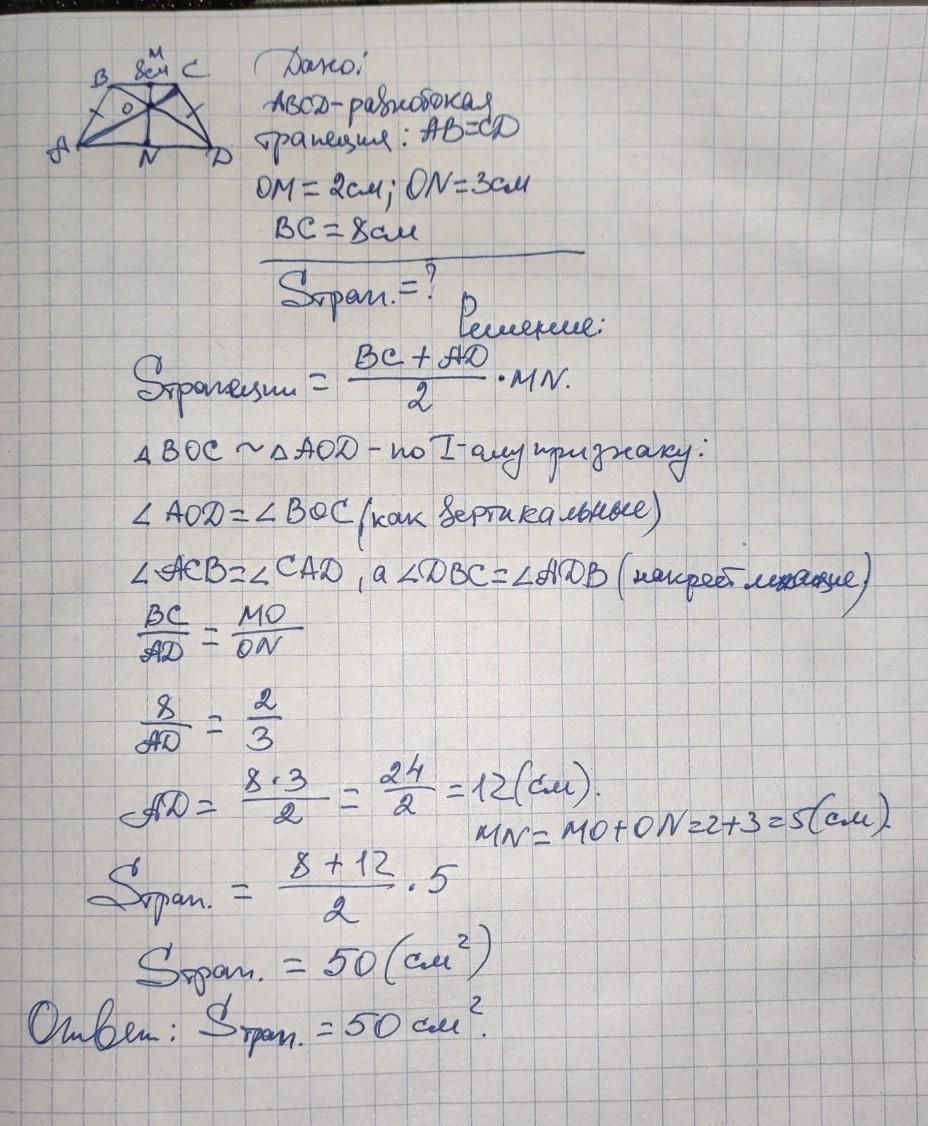 M
B 8см C
O
A N D
Дано:
ABCD-равнобокая
трапеция: AB=CD
OM = 2см; ON=3см
BC = 8см
Sтрап.=?
Решение:
Sтрапеции = \frac{BC + AD}{2} · MN.
△BOC ~ △AOD - по I-ому признаку:
∠AOD=∠BOC (как вертикальные)
∠ACB=∠CAD, а ∠DBC=∠ADB (накрест лежащие)
\frac{BC}{AD} = \frac{MO}{ON}
\frac{8}{AD} = \frac{2}{3}
AD = \frac{8·3}{2} = \frac{24}{2} = 12(см).
MN = MO+ON=2+3=5(см).
Sтрап. = \frac{8+12}{2} · 5
Sтрап. = 50 (см²)
Ответ: Sтрап. = 50 см².